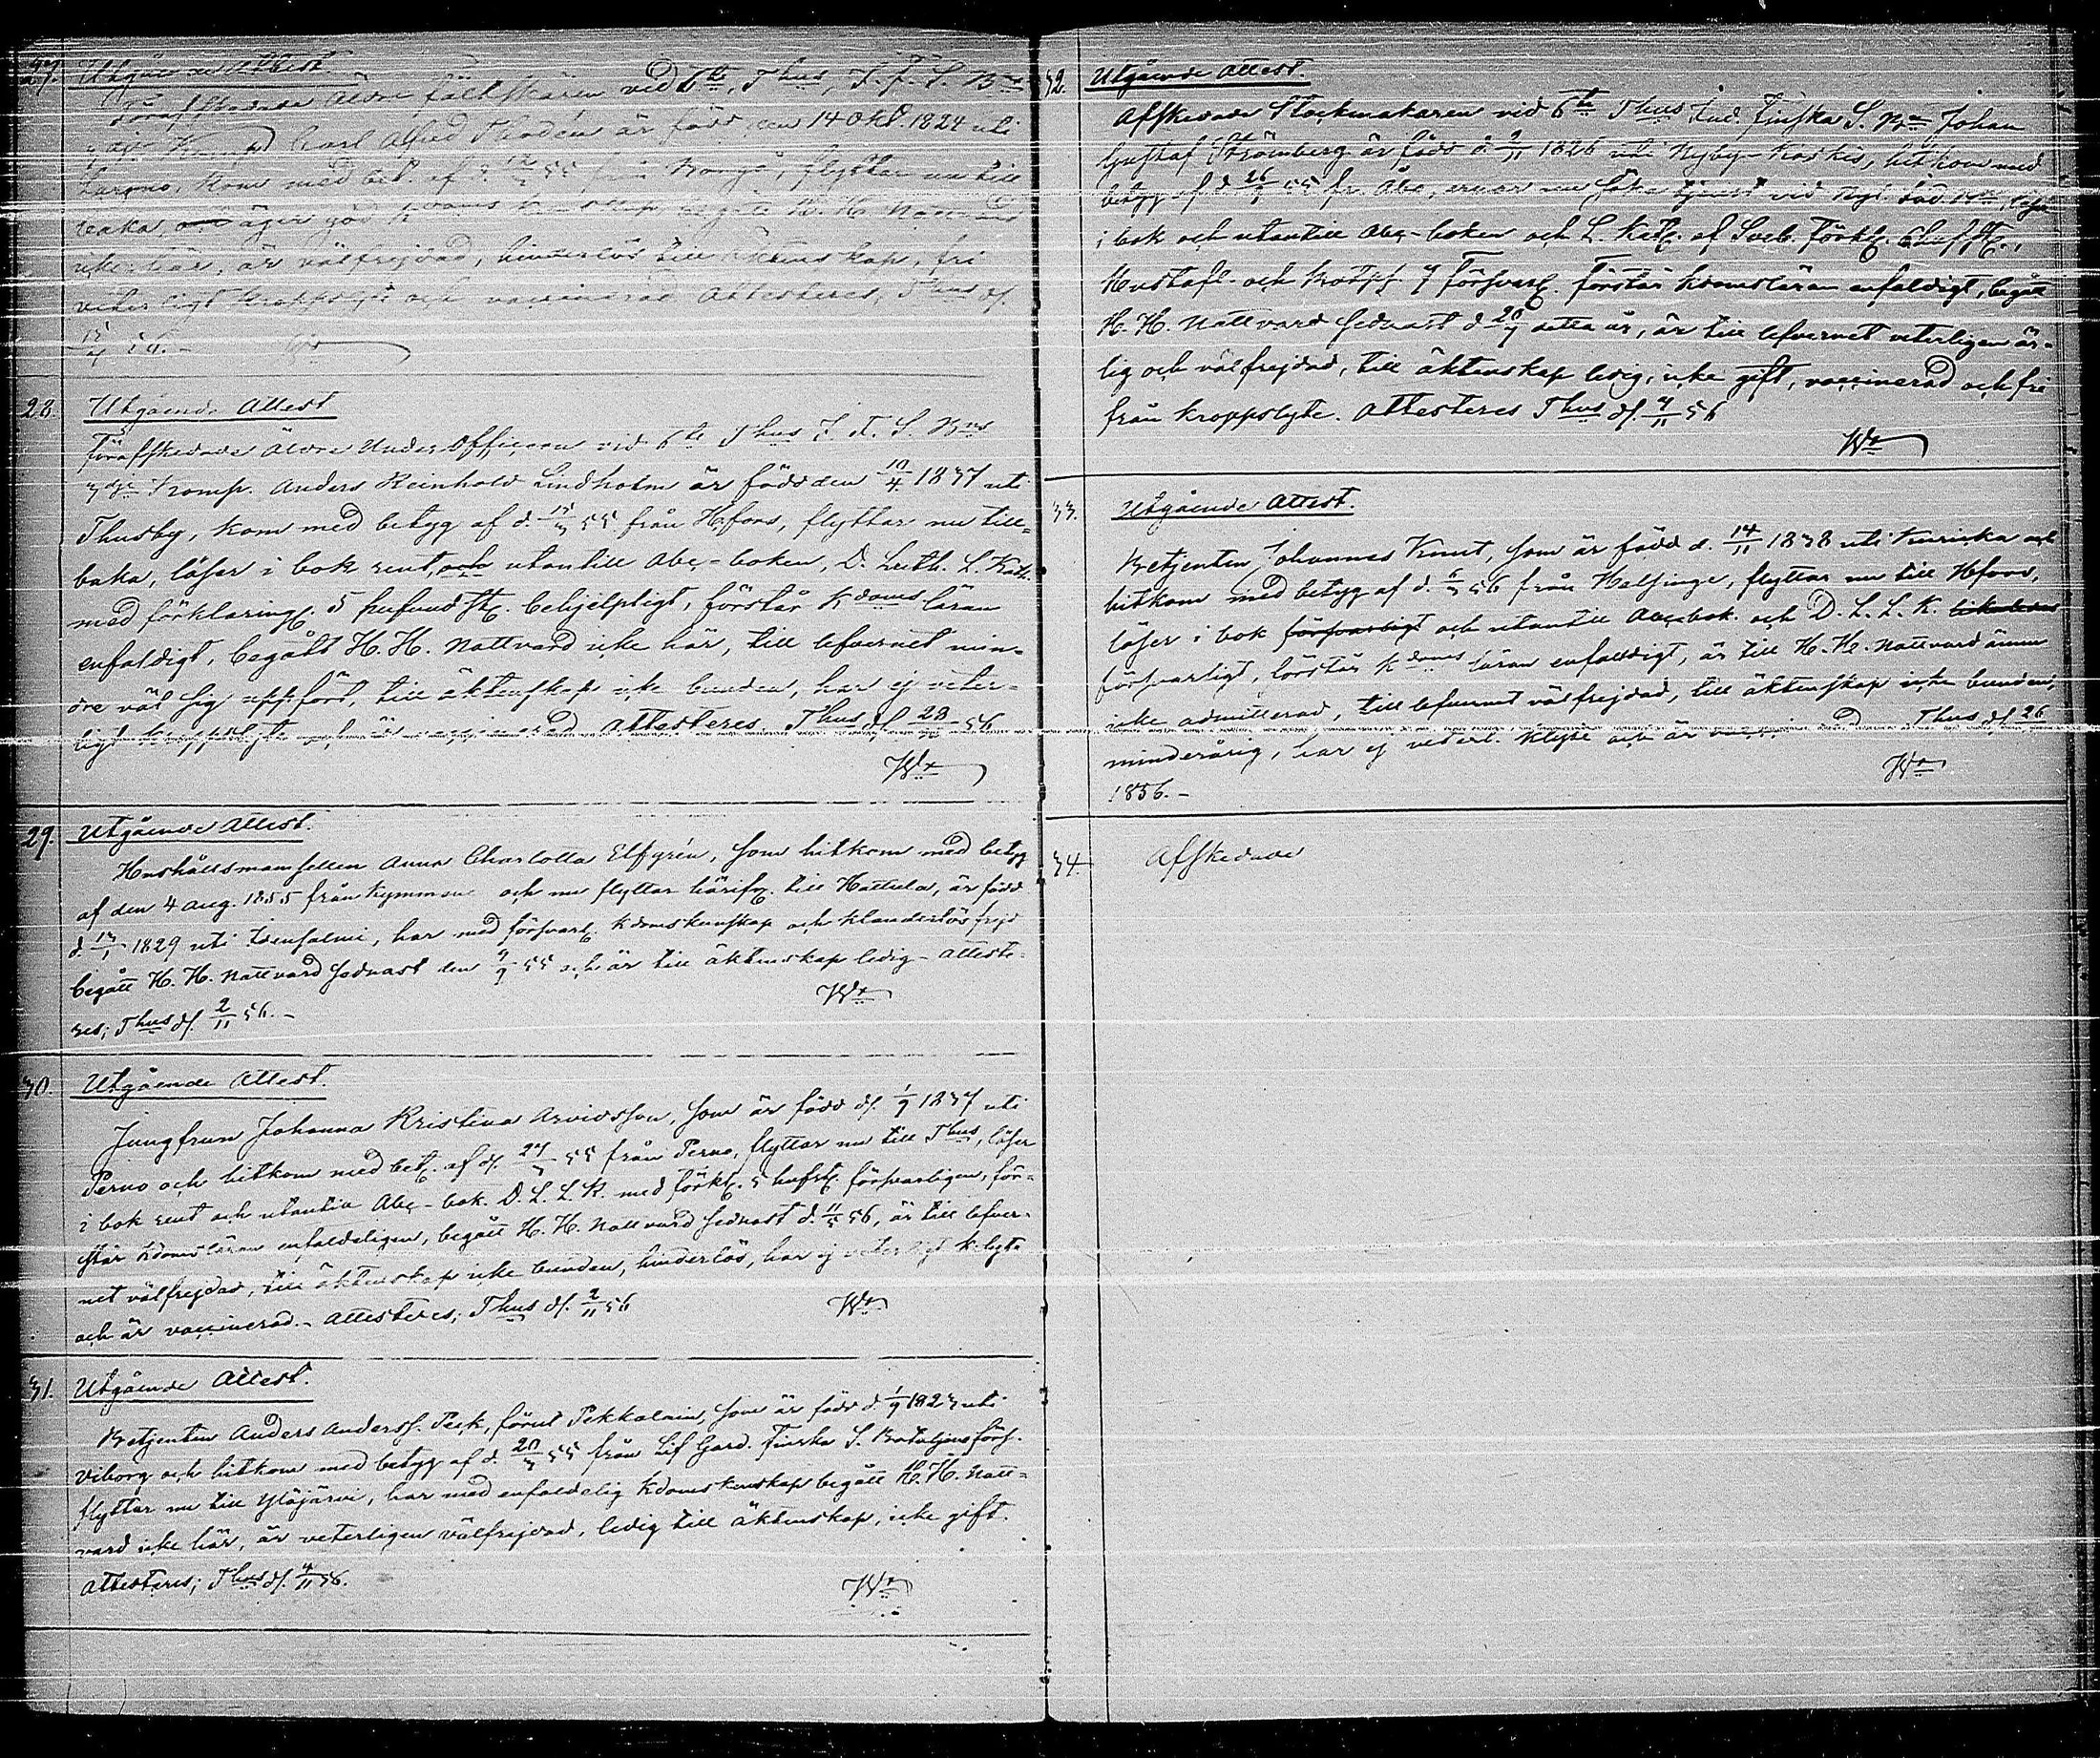 27. Utgående Attest.
Förafskedade Äldre fältskären vid 6te Thus, I. F. S. Bns
Komp. Carl Alfred Thodén är född den 14 Okt. 1824 uti
kom med bet. af d. 55 från Borgå, flyttar nu till
baka, äger god Kdoms kunskap, begått H. H. Nattvard
icke här, är välfrejdad, hinderslös till äktenskap, fri
veterligt kroppslyte och vaccinerad Attesteras, Thus d.
56.-
28. Utgående Attest
Förafskedade Äldre Under Officeren vid 6te Thus I. F. S. Bns
3dje Komp. Anders Reinhold Lindholm är född den 10/4 1837 uti
Thusby, kom med betyg af d. 15/3 55 från Hfors, flyttar nu till-
baka, läser i bok rent, och utantill Abc-boken, D. Luth. L. Kath.
med förklaring. 5 hufvudst. behjelpligt, förstår Kdoms läran
enfaldigt, begått H. H. Nattvard icke här, till lefvernet min-
dre väl sig uppfört, till äktenskap icke bunden, har ej veter-
ligt kroppslyte och är vaccinerad Attesteres, Thus d. 28 56
Wr
29. Utgående Attest.
Hushållsmamsellen Anna Charlotta Elfgrén, som hitkom med betyg
af den 4 Aug. 1855 från Kymmene och nu flyttar härifr. till Hattula, är född
d. 1829 uti Idensalmi, har med försvarl. Kdomskunskap och klanderlös frejd
begått H. H. Nattvard sednast den 9/9 55 och är till äktenskap ledig - Atteste-
res; Thus d. 2/11 56.-
Wr
30. Utgående Attest.
Jungfrun Johanna Kristina Arvidsson, som är född d. 1/9 1837 uti
Perno och hitkom med bet. af d. 27/3 55 från Perno, flyttar nu till Thus, läser
i bok rent och utantill Abc-bok. D. L. L. K. med förkl. 5 hufst. försvarligen, för-
står Kdomsläran enfaldeligen, begått H. H. Nattvard sednast d. 11/5 56, är till lefver-
net välfrejdad, till äktenskap icke bunden, hinderlös, har ej veterligt k.lyte
och är vaccinerad.- Attesteres; Thus d. 2/11 56
Wr
31. Utgående Attest.
Betjenten Anders Anderss. Peck, förut Pekkalain, som är född d. 1/9 1823 uti
Viborg och hitkom med betyg af d. 20/3 55 från Lif Gard. Finska S. Bataljons förs.
flyttar nu till Ylöjärvi, har med enfaldelig Kdomskunskap begått H. H. Natt-
vard icke här, är veterligen välfrejdad, ledig till äktenskap, icke gift.
Attesteres; Thus d. 4/11 56.
Wr
32. Utgående Attest.
Afskedade Stockmakaren vid 6te Thus Ind. Finska S. Bn Johan
Gustaf Strömberg är född d. 9/11 1826 uti Nyby-Koskis, hitkom med
betyg af d. 26 55 fr. Åbo, ernar nu söka tjenst vid Nyl. Ind. Bn, läser
i bok och utantill Abc-boken och L. Kat. af Sveb. förkl.
Hustafl. och försvarl. Förstår Kdomsläran enfaldigt, begått
H. H. Nattvard sednast d 20/7 detta år, är till lefvernet veterligen är-
lig och välfrejdad, till äktenskap ledig, icke gift, vaccinerad och fri
från kroppslyte. Attesteres Thus d. 4/11 56
Wr
33. Utgående Attest.
Betjenten Johannes Knut, som är född d. 14/11 1838 uti Kuricka och
hitkom med betyg af d. 5/3 56 från Helsinge, flyttar nu till Hfors,
läser i bok försvarligt och utantill Abc-bok. och D. L. L. K.
försvarligt, förstår Kdoms läran enfaldigt, är till H. H. Nattvard ännu
icke admitterad, till lefvernet välfrejdad, till äktenskap icke bunden,
minderårig, har ej veterl. klyte och är Thus d. 26
1856.-
Wr
34. Afskedade